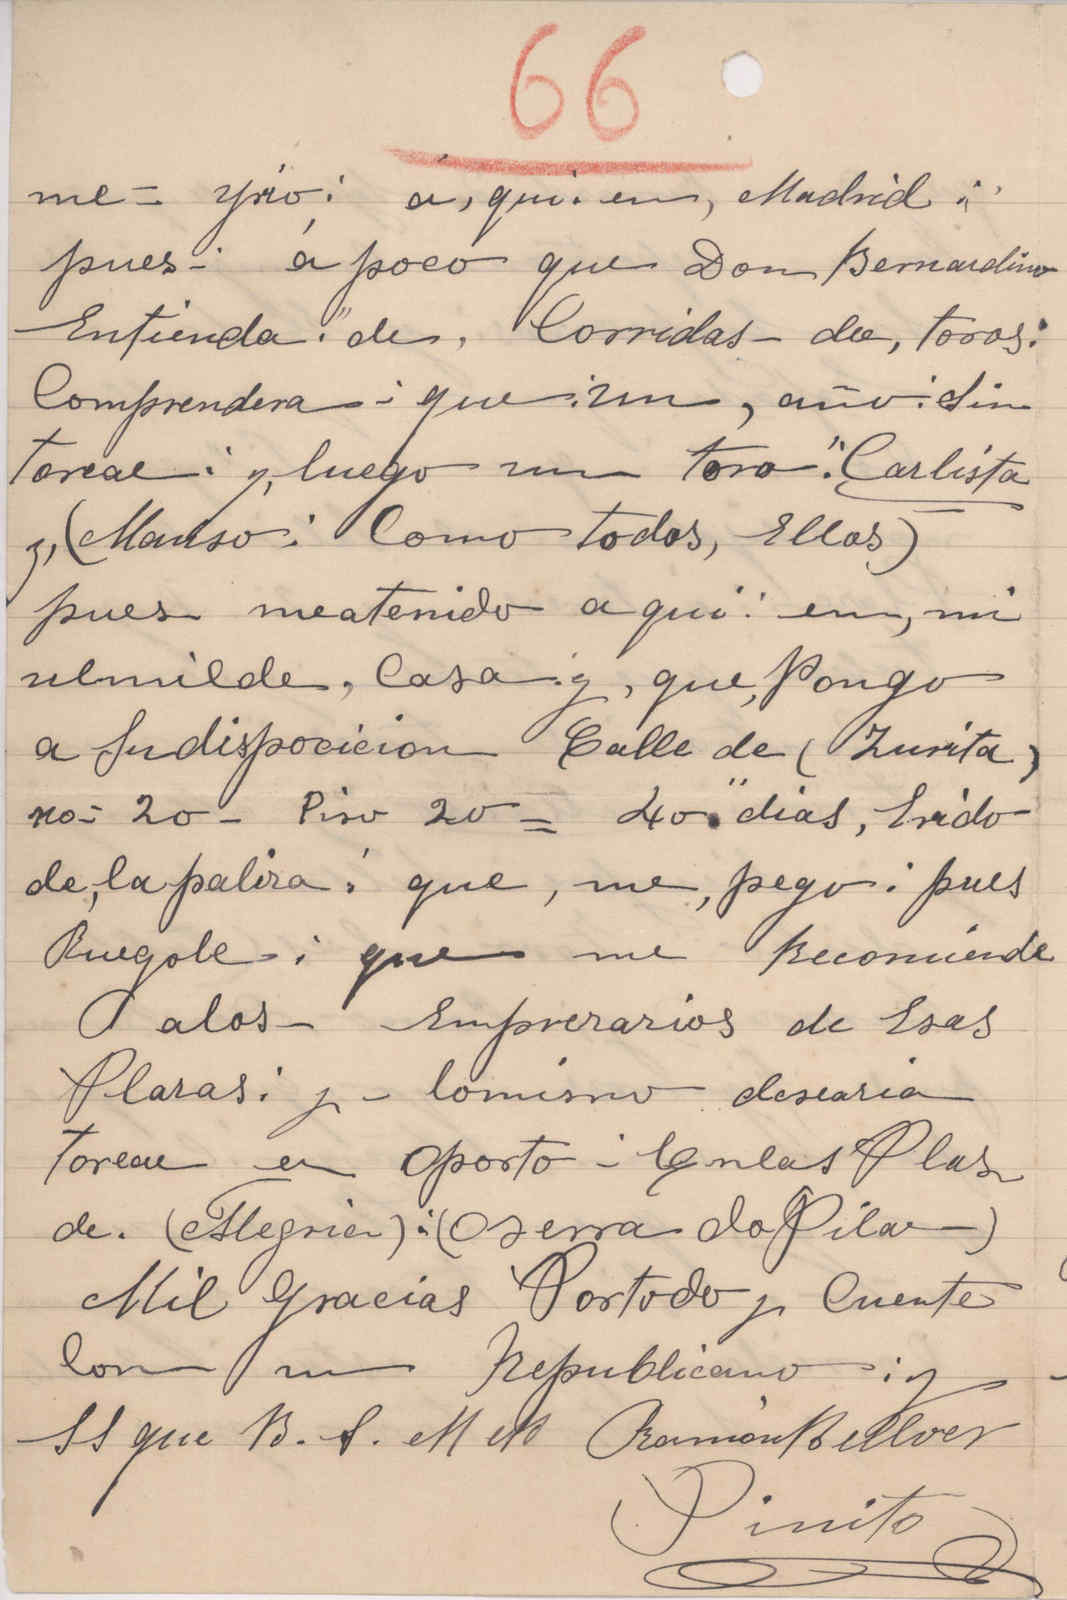 66
me= yrio: á, qui: en, Madrid :
pues-: á poco que Don Bernardino
Entienda :" de, Corridas- de, toros:
Comprendera -: que :un, año: Sin
toreae : y, luego un toro ":Carlista
y, (Manso: Como todos, Ellos)
pues meatenido aqui: en, mi
ulmilde, Casa :y, que, Pongo
a Sudispocicion Calle de (Zurita)
no= 20- Piso 20= 40" dias, Erido
de, la paliza: que, me, pego: pues
Ruegole : que me Recomiende
alos- Emprerarios de Esas
Plazas: y - lomismo desearia
toreae en Oporto -: Enlas Plas
de. (Alegria):(Oserra do Pilae-)
Mil Gracias Portodo y Cuente
Con un Republicano :y
SS que B. S. M Ramón Bellver
Pinito